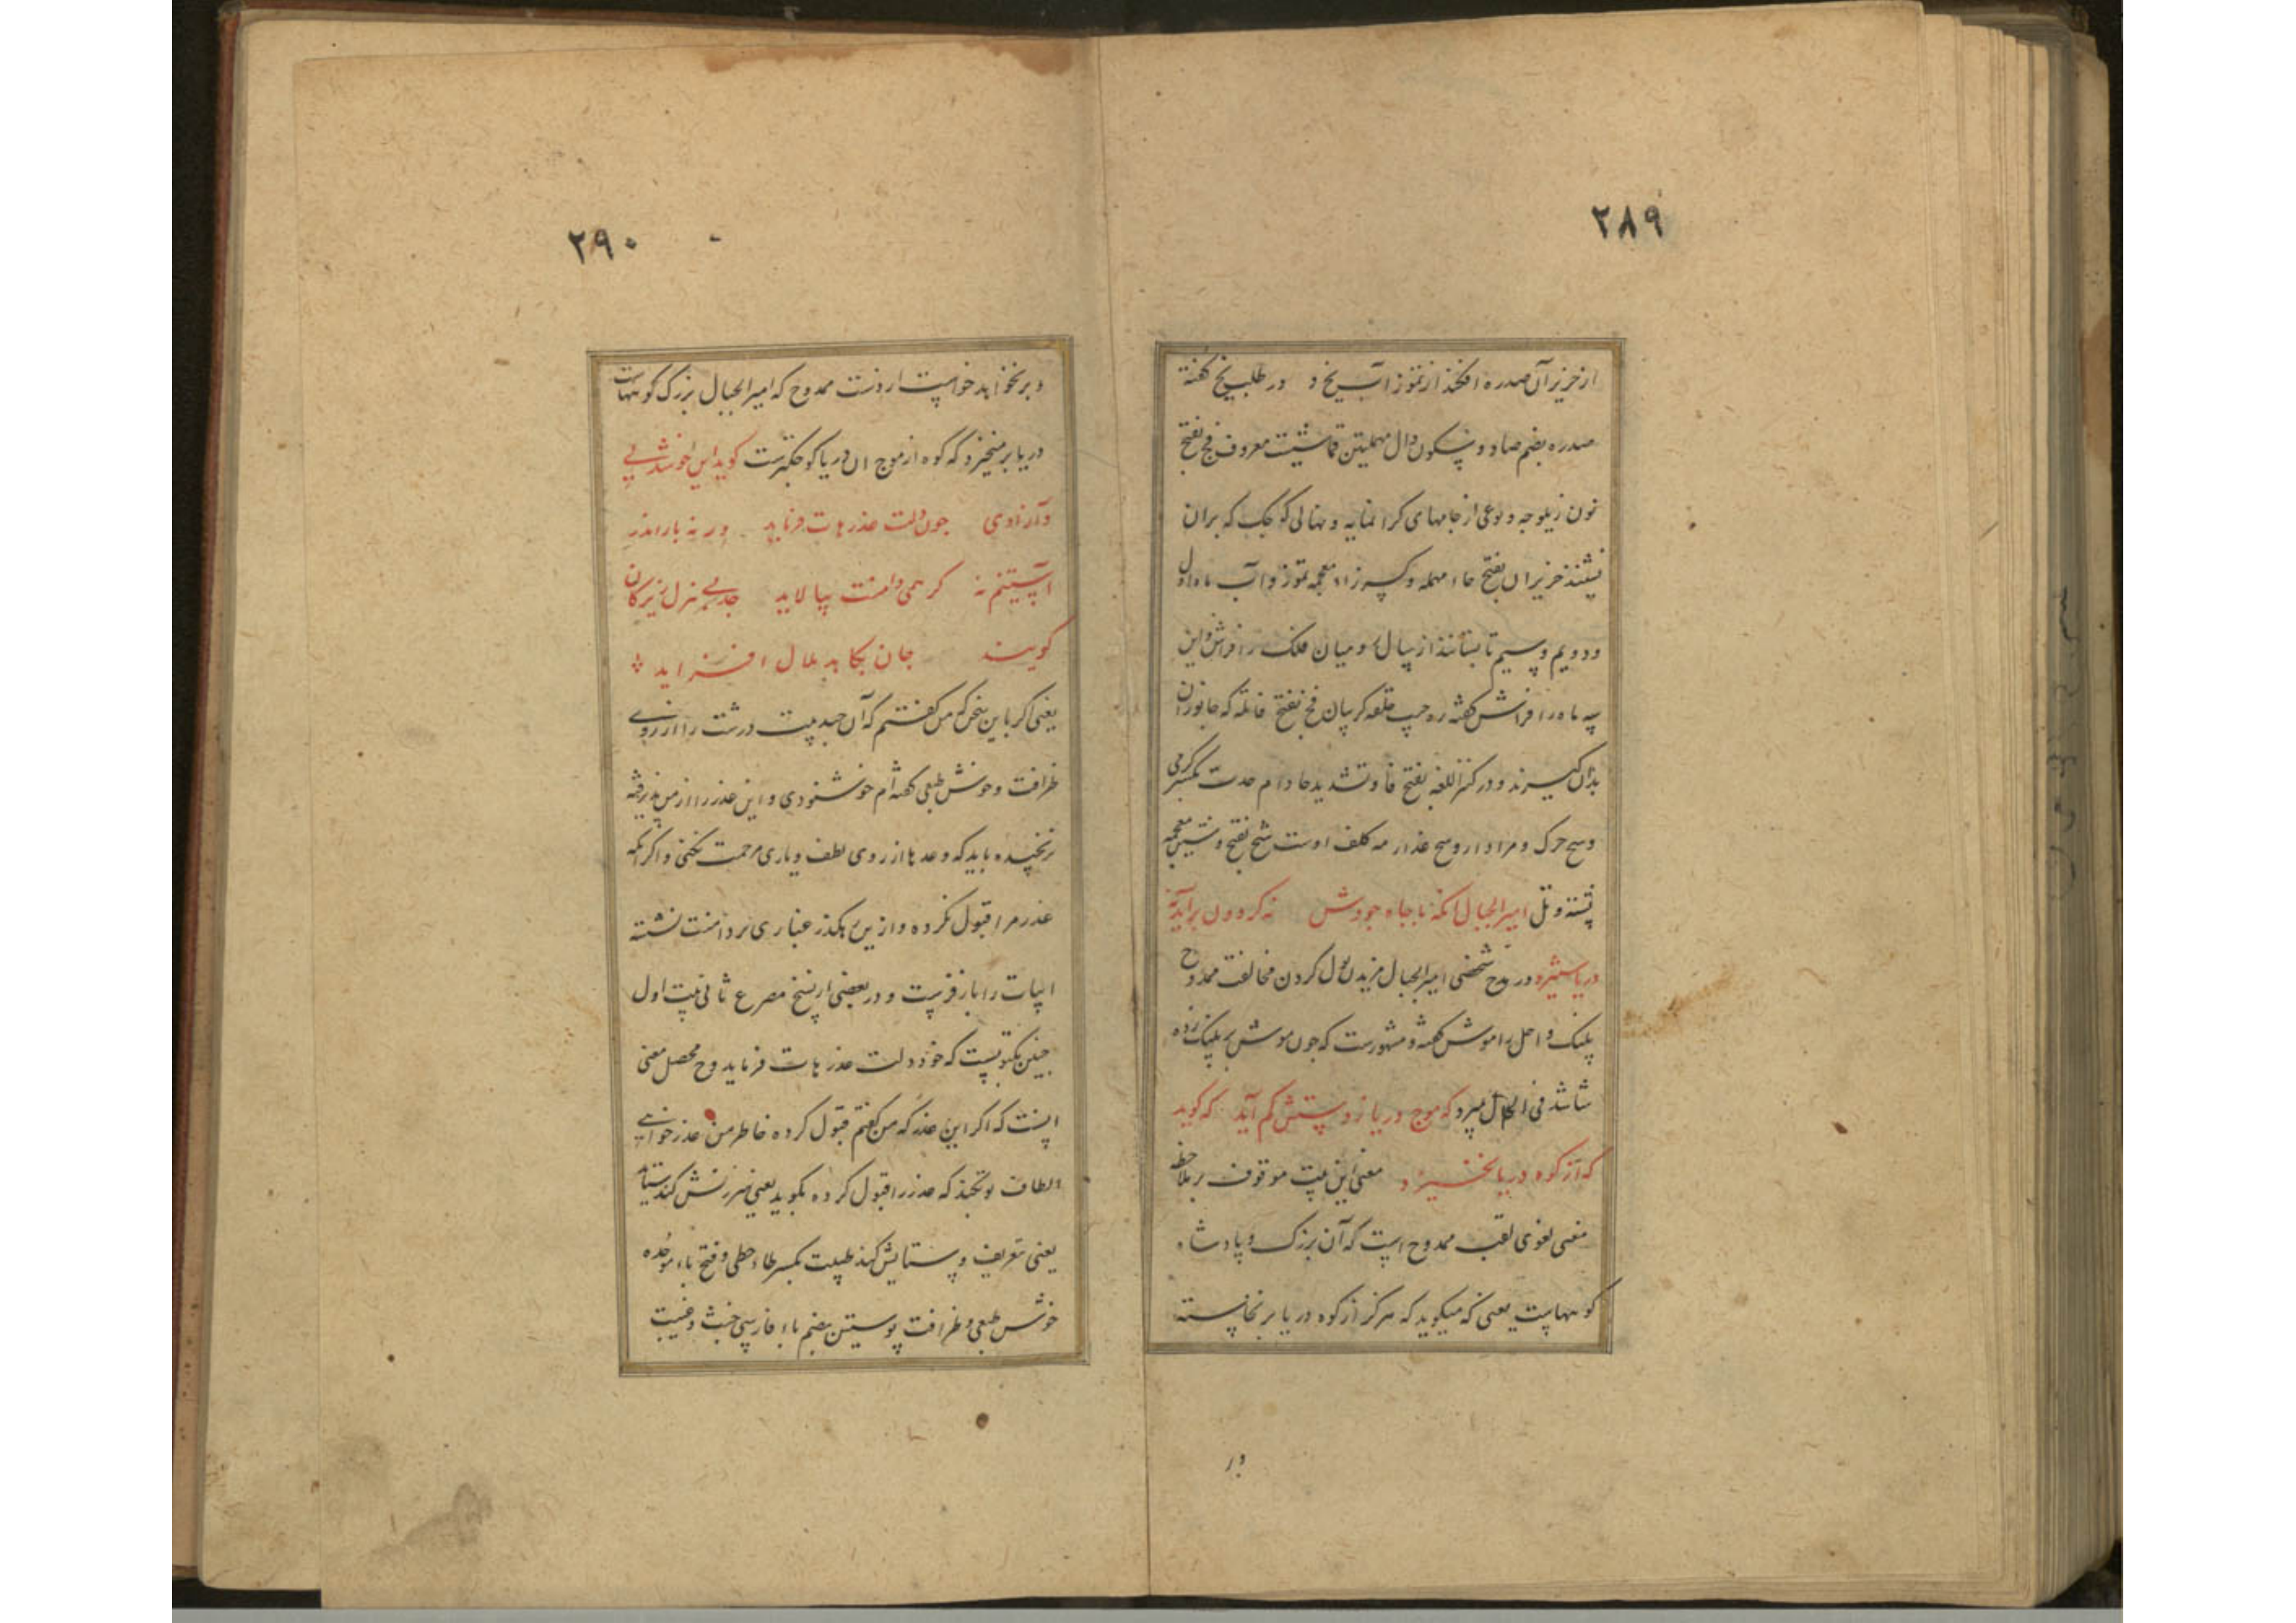 ۲۸۹
از خزیران صدره افکند از تموز آب یخ و در طلب یخ گفته
صدره بضم صاد و سکون دال مهملتین قماشیست معروف نخ بفتح
نون زیلوچه و نوعی از جامهای کرانمایه و نهالی کوچک که بران
نشینند خزیران بفتح حاء مهمله و کسر زاء معجمه تموز و آب ماه اول
و دویم و سیم تابستانند از سال و میان فلک را فراش و این
سه ماه را فراش گفته فخ بفتح فا تله که جانوران
بدان گیرند و در کنز اللغه بفتح فا و تشدید خا دام حدت بکسر گرمی
و مراد از وسخ عذار مه کلف اوست شخ بفتح شین معجمه
پشته و تل امیرالجبال آنکه با جاه و جودش نه گردون برآید نه
دریا ستیزد در مدح شخصی امیرالجبال بول کردن مخالفت ممدوح
پلنک و اجل را موش گفته و مشهورست که چون موش بر پلنک زده
شاشد فی الحال میرد که موج دریا ز دستش کم آید که گوید
که از کوه دریا نخیزد معنی این بیت موقوف بر ملاحظه
معنی لغوی لقب ممدوح است که آن بزرک و پادشاه
کوههاست یعنی که میکوید که هرگز از کوه دریا برنخاسته
در
۲۹۰
و برنخواهد خواست از دست ممدوح که امیرالجبال بزرک کوههاست
دریا بر میخیزد که کوه از موج آن دریا کوچکترست
و آزادی چون دلت عذرهات فرماید ور نه باز اندر
آستینم نه گر همی دامنت بیالاید جد بی هزل زیرکان
گویند جان بکاهد ملال افزاید
یعنی اگر باین سخن که من گفتم که آن درشت را از روی
ظرافت و خوش طبعی گفته‌ام خوشنودی و این عذر را از من پذیرفته
نرنجیده باید که وعدها از روی لطف و یاری مرحمت نکنی و اگر آنکه
عذر مرا قبول نکرده و ازین رهکذر غباری بر دامنت نشسته
ابیات را باز فرست و در بعضی از نسخ مصرع ثانی بیت اول
چنین مکتوبست که خود دلت عذرهات فرماید و ح محصل معنی
اینست که اگر این عذر که من گفتم قبول کرده خاطر من عذر خواهی
الطاف تو کند که عذر را قبول کرده نکوید یعنی سرزنش کند ستاید
یعنی تعریف و ستایش کند طیبت بکسر طاء حطی و فتح باء موحده
خوش طبعی و ظرافت پوستین بضم باء فارسی خبث و غیبت